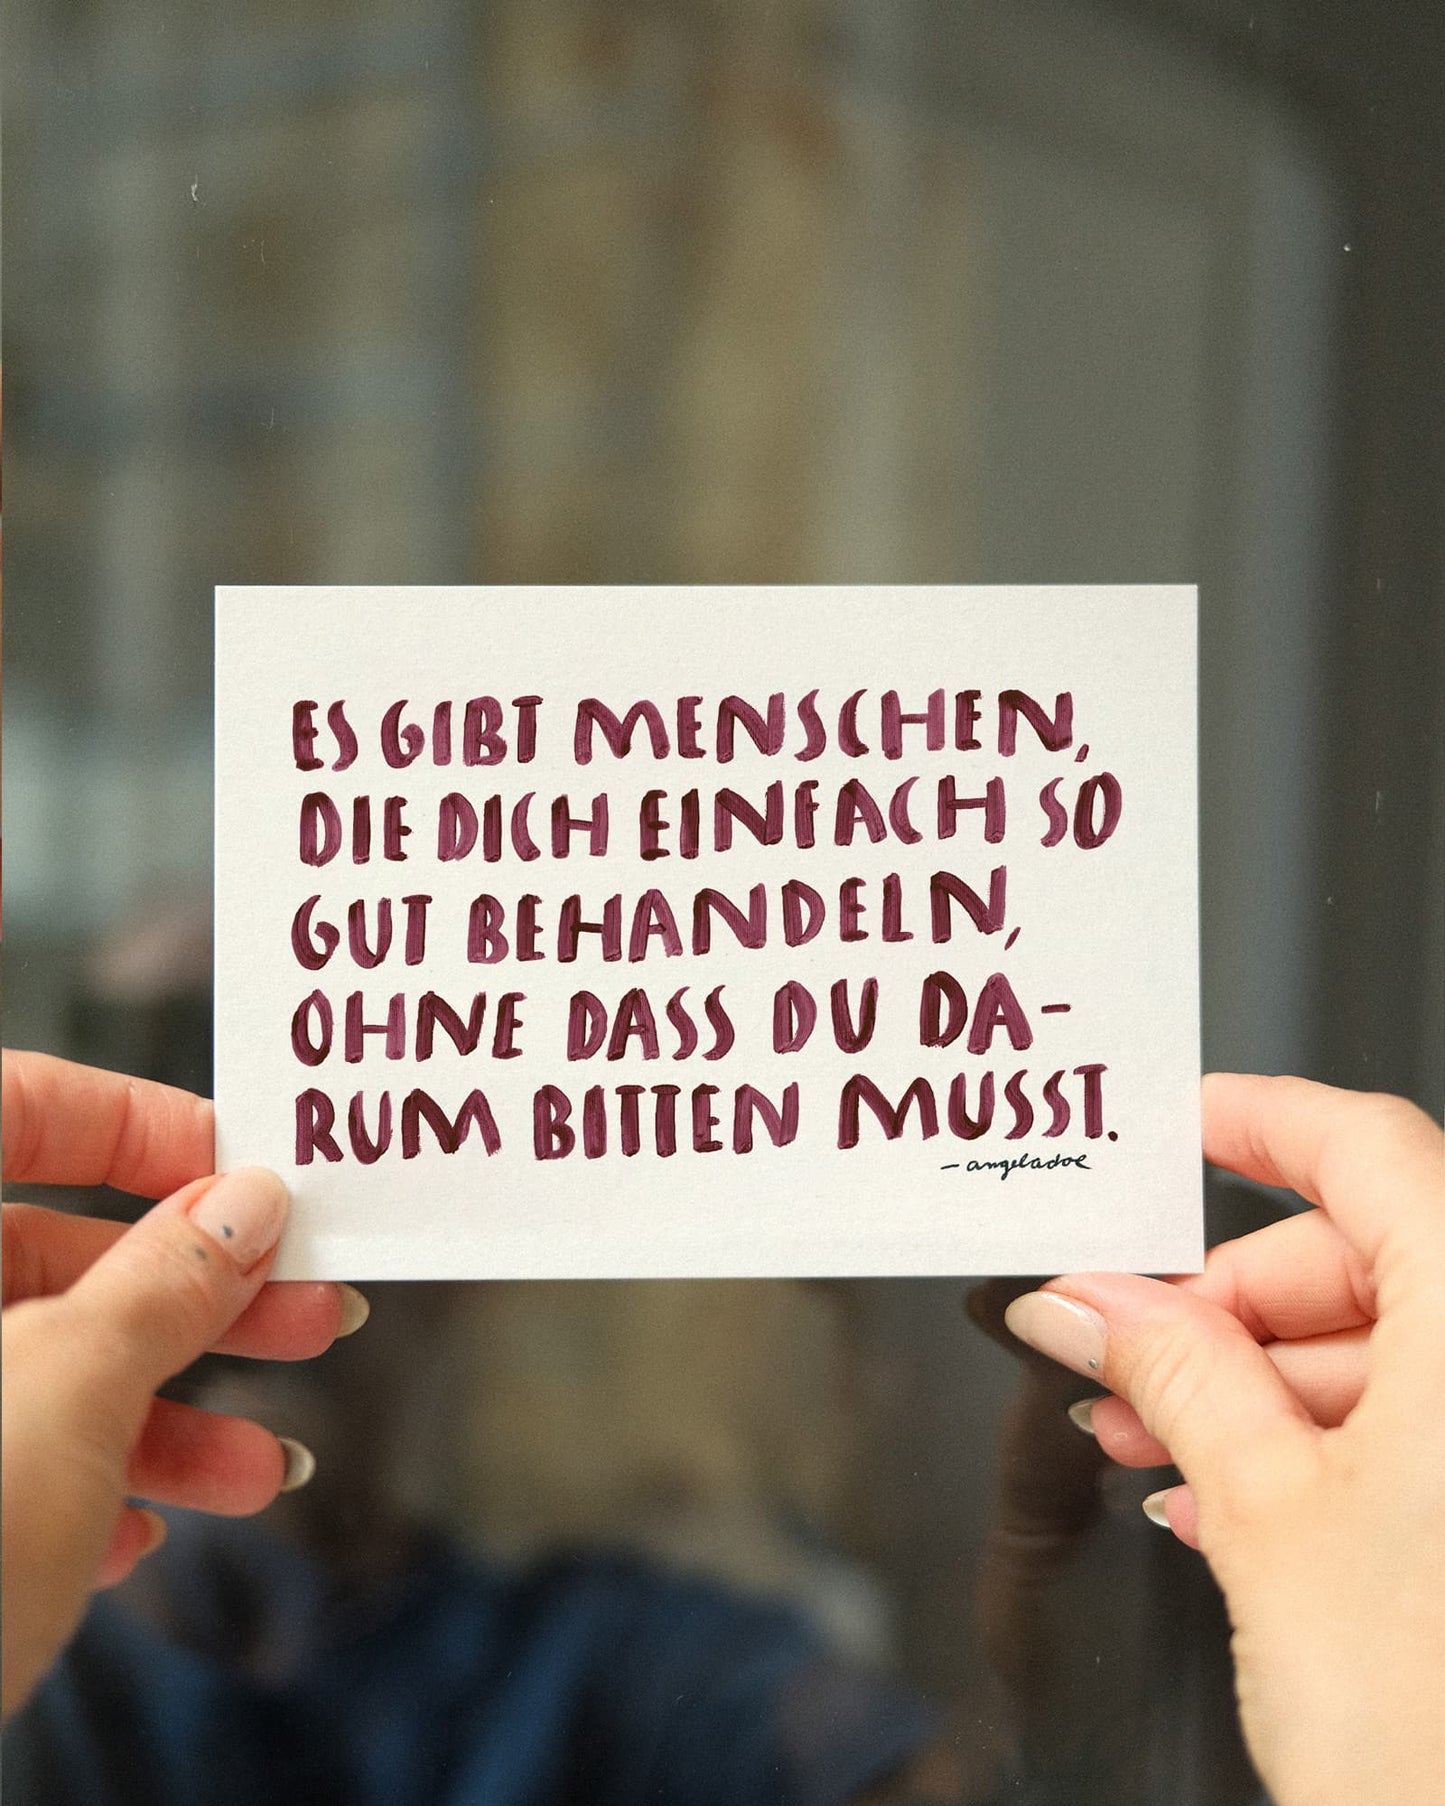 ES GIBT MENSCHEN,
DIE DICH EINFACH SO
GUT BEHANDELN,
OHNE DASS DU DA-
RUM BITTEN MUSST.
– angeladoe